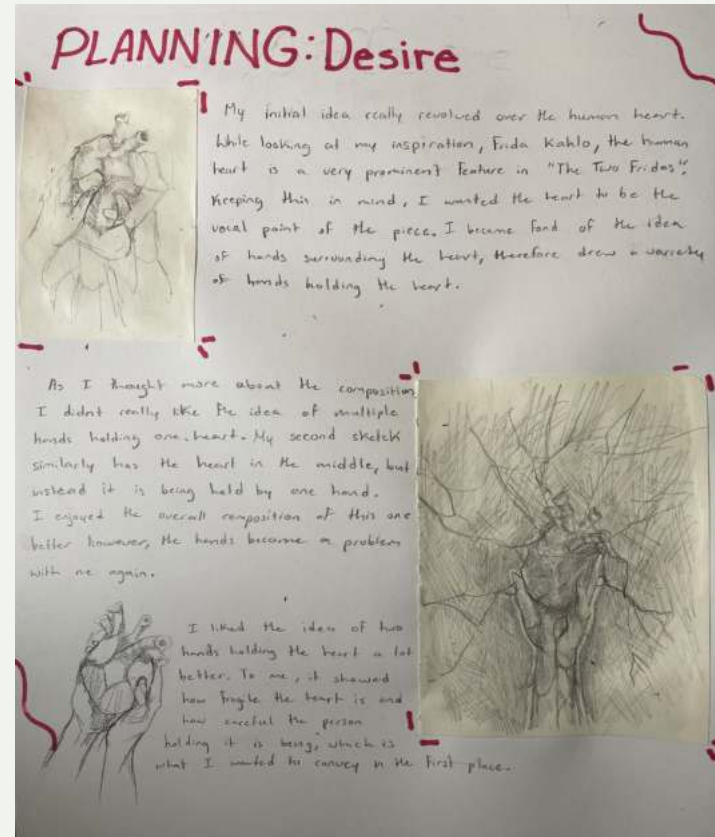 PLANNING: Desire
My initial idea really revolved over the human heart.
While looking at my inspiration, Frida Kahlo, the human
heart is a very prominent feature in "The Two Fridas".
Keeping this in mind, I wanted the heart to be the
vocal point of the piece. I became fond of the idea
of hands surrounding the heart, therefore drew a variety
of hands holding the heart.
As I thought more about the composition
I didnt really like the idea of multiple
hands holding one heart. My second sketch
similarly has the heart in the middle, but
instead it is being held by one hand.
I enjoyed the overall composition of this one
better however, the hands become a problem
with me again.
I liked the idea of two
hands holding the heart a lot
better. To me, it showed
how fragile the heart is and
how careful the person
holding it is being, which is
what I wanted to convey in the first place.